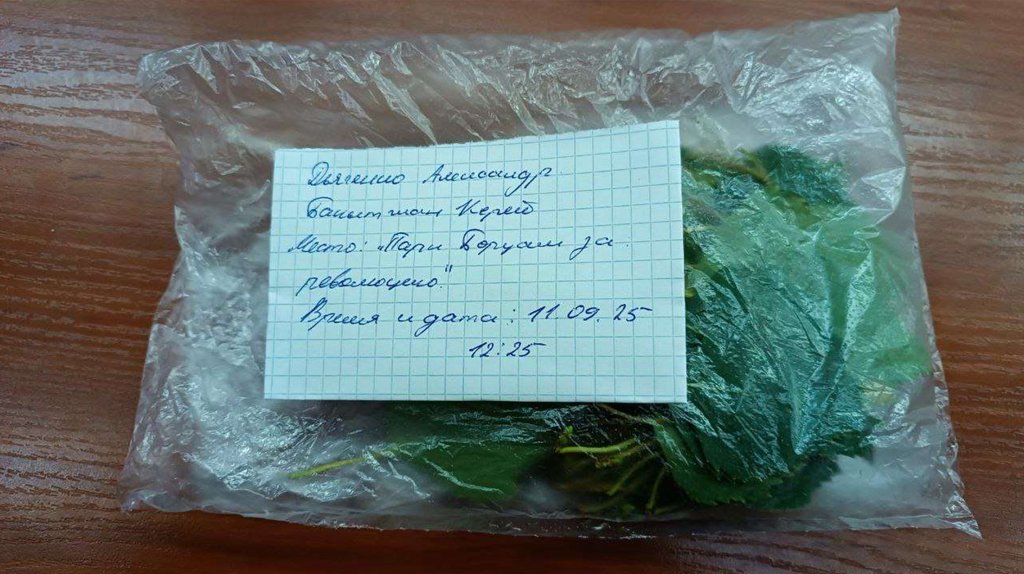 Дьяченко Александр
Бакытжан Керей
Место: "Парк Борцам за
революцию"
Время и дата: 11.09.25
12:25